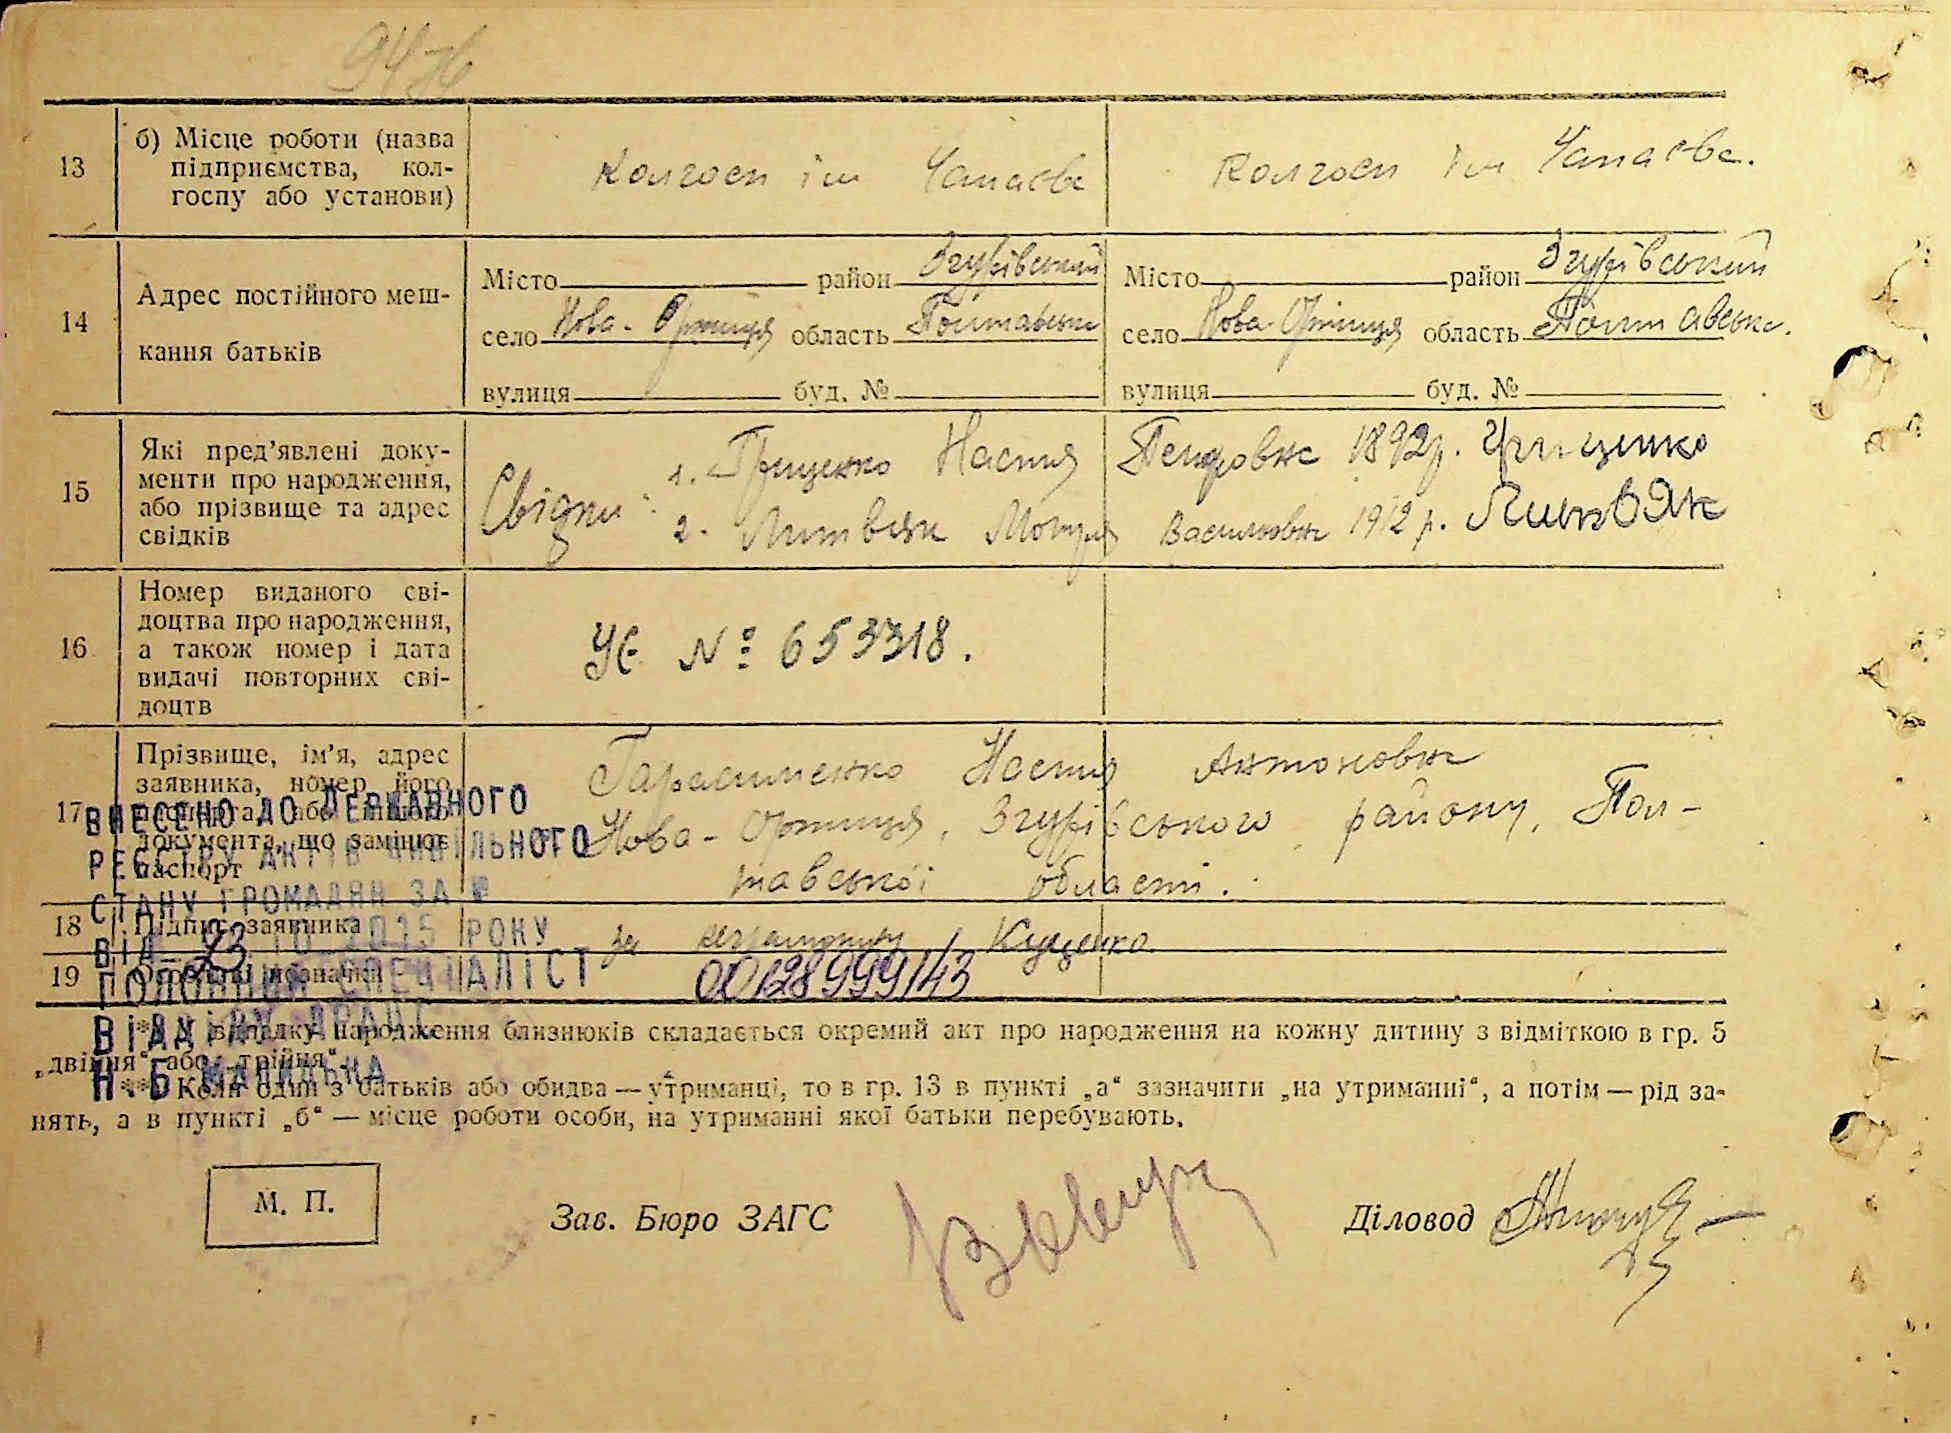 13
б) Місце роботи (назва
підприємства, кол-
госпу або установи)
Колгосп ім Чапаєва
Колгосп ім Чапаєва.
14
Адрес постійного меш-
кання батьків
Місто район Згурівський
село Нова-Оржиця область Полтавська
вулиця буд. №
Місто район Згурівський
село Нова-Оржиця область Полтавська.
вулиця буд. №
15
Які пред'явлені доку-
менти про народження,
або прізвище та адрес
свідків
Свідки: 1. Грищенко Настя Петровна 1892р. Грищенко
2. Литвяк Мотря Василовна 1912 р. Литвяк
16
Номер виданого сві-
доцтва про народження,
а також номер і дата
видачі повторних сві-
доцтв
УЄ № 653318.
17
Прізвище, ім'я, адрес
заявника, номер його
паспорта, або
документа, що замінює
паспорт
Гарасименко Настя Антоновна
Нова-Оржиця, Згурівського району, Пол-
тавської області.
18
Підпис заявника
за неграмотну Куценко.
19
Особливі
00128999143
ВНЕСЕНО ДО ДЕРЖАВНОГО
РЕЄСТРУ АКТІВ ЦИВІЛЬНОГО
СТАНУ ГРОМАДЯН ЗА №
ВІД 23 10 2015 РОКУ
ГОЛОВНИЙ СПЕЦІАЛІСТ
ВІДДІЛУ ДРАЦС
Н.Б
* У випадку народження близнюків складається окремий акт про народження на кожну дитину з відміткою в гр. 5
„двійня“ або „трійня“.
** Коли один з батьків або обидва — утриманці, то в гр. 13 в пункті „а“ зазначити „на утриманні“, а потім — рід за-
нять, а в пункті „б“ — місце роботи особи, на утриманні якої батьки перебувають.
М. П.
Зав. Бюро ЗАГС
Діловод